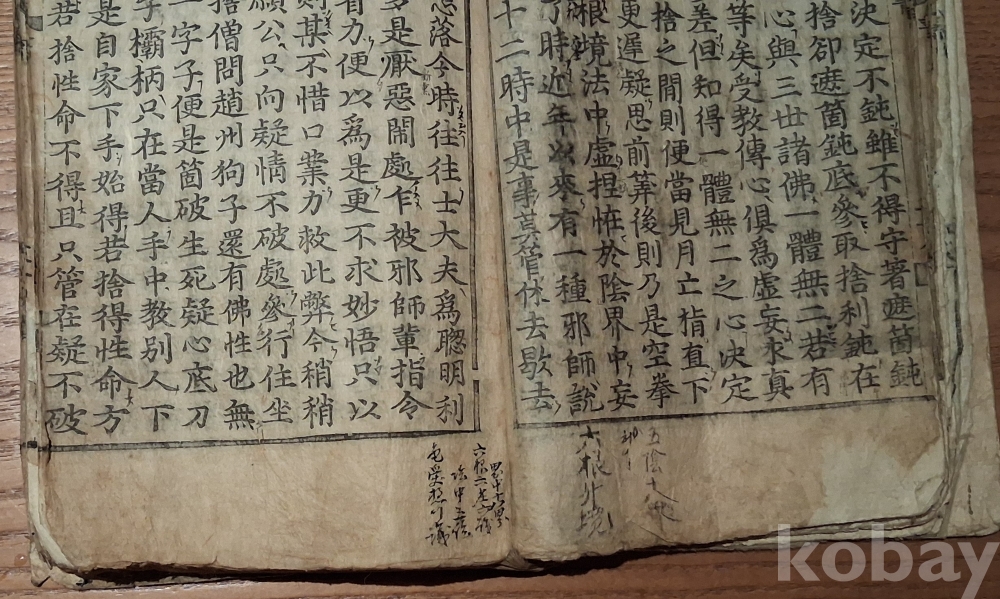 決定不鈍雖不得守著遮箇鈍
捨却遮箇鈍底參取捨利鈍在
心與三世諸佛一體無二若有
等矣受教傳心俱爲虛妄求真
差但知得一體無二之心決定
捨之間則便當見月亡指直下
更遲疑思前筭後則乃是空拳
根境法中虛捏恠於陰界中妄
了時近年以來有一種邪師說
十二時中是事莫管休去歇去
落今時往往士大夫爲聦明利
多是厭惡鬧處乍被邪師輩指令
有力便以爲是更不求妙悟只以
則某不惜口業力救此弊今稍稍
公只向疑情不破處參行住坐
捨僧問趙州狗子還有佛性也無
一字子便是箇破生死疑心底刀
欛柄只在當人手中教別人下
是自家下手始得若捨得性命方
若捨性命不得且只管在疑不破
五陰十八
六根
kobay